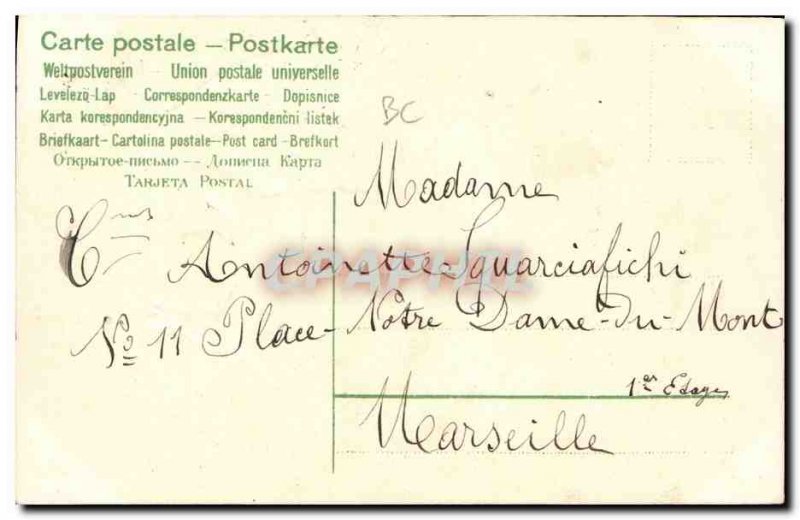 Carte postale – Postkarte
Weltpostverein – Union postale universelle
Levelezö-Lap – Correspondenzkarte – Dopisnice
Karta korespondencyjna – Korespondenční listek
Briefkaart – Cartolina postale – Post card – Brefkort
Открытое-письмо — Дописна Карта
TARJETA POSTAL
BC
Madame
Antoinette Squarciafichi
No 11 Place – Notre Dame-du-Mont
1er Etage
Marseille